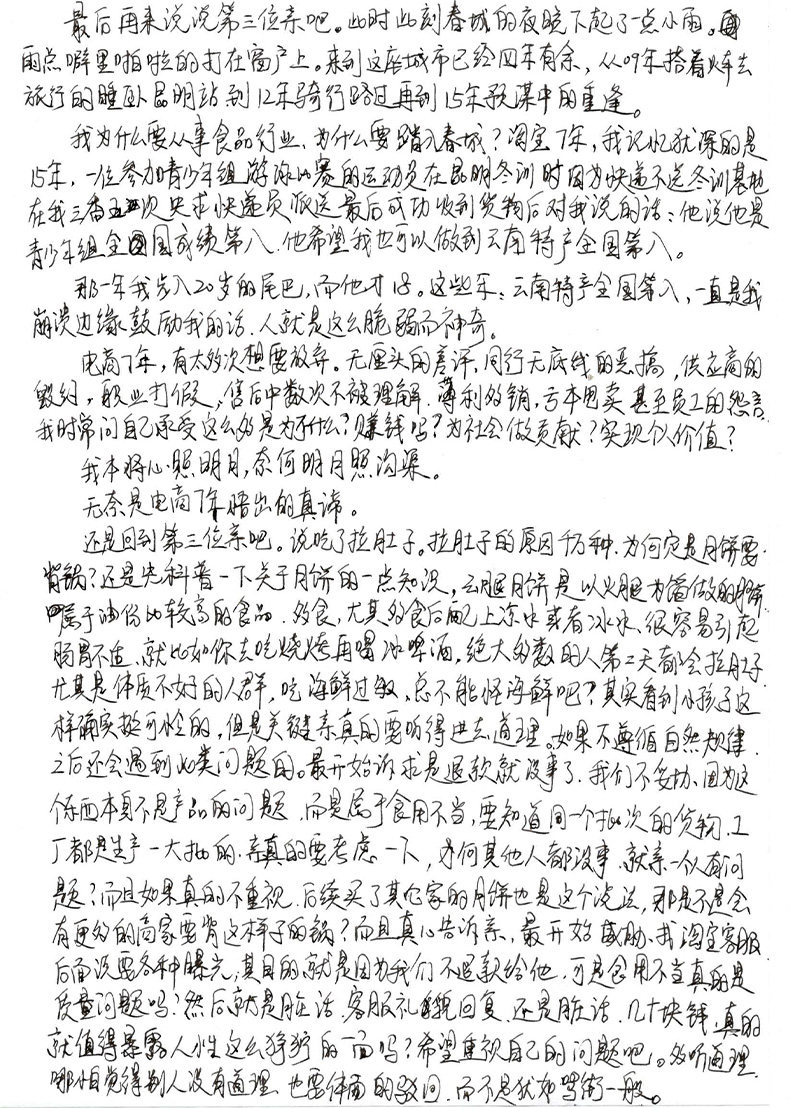 最后再来说说第三位亲吧。此时此刻春城的夜晚下起了一点小雨。
雨点噼里啪啦的打在窗户上。来到这座城市已经四年有余，从09年搭着火车去
旅行的睡卧昆明站到12年骑行路过再到15年预谋中的重逢。
我为什么要从事食品行业、为什么要踏入春城？淘宝7年，我记忆犹深的是
15年，一位参加青少年组游泳比赛的运动员在昆明冬训时因为快递不送冬训基地
在我三番五次央求快递员派送最后成功收到货物后对我说的话：他说他是
青少年组全国成绩第八、他希望我也可以做到云南特产全国第八。
那一年我步入20岁的尾巴，而他才18。这些年：云南特产全国第八，一直是我
崩溃边缘鼓励我的话、人就是这么脆弱而神奇。
电商7年，有太多次想要放弃。无厘头的差评，同行无底线的恶搞，供应商的
毁约，职业打假，售后中数次不被理解、薄利多销，亏本甩卖甚至员工的怨言
我时常问自己承受这么多是为了什么？赚钱吗？为社会做贡献？实现个人价值？
我本将心照明月，奈何明月照沟渠。
无奈是电商7年悟出的真谛。
还是回到第三位亲吧。说吃了拉肚子。拉肚子的原因千万种、为何定是月饼要
背锅？还是先科普一下关于月饼的一点知识，云腿月饼是以火腿为馅做的月饼
属于油份比较高的食品、多食，尤其多食后配上凉水或者冰水、很容易引起
肠胃不适、就比如你去吃烧烤再喝冰啤酒，绝大多数的人第二天都会拉肚子
尤其是体质不好的人群，吃海鲜过敏，总不能怪海鲜吧？其实看到小孩子这
样确实挺可怜的，但是关键亲真的要听得进去道理。如果不遵循自然规律、
之后还会遇到此类问题的。最开始诉求是退款就没事了、我们不妥协、因为这
个东西本身不是产品的问题、而是属于食用不当，要知道同一个批次的货物、工
厂都是生产一大批的、亲真的要考虑一下，为何其他人都没事、就亲一个人有问
题？而且如果真的不重视、后续买了其它家的月饼也是这个说法，那是不是会
有更多的商家要背这样子的锅？而且真心告诉亲，最开始威胁我淘宝客服
后面说要各种曝光，其目的就是因为我们不退款给他，可是食用不当真的是
质量问题吗？然后就是脏话、客服礼貌回复、还是脏话、几十块钱，真的
就值得暴露人性这么狰狞的一面吗？希望重视自己的问题吧。多听道理、
哪怕觉得别人没有道理、也要体面的驳问、而不是犹如骂街一般。